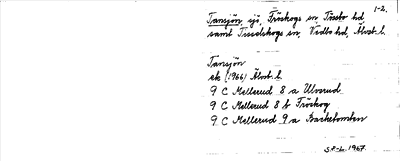 1-2.
Tansjön, sjö, Fröskogs sn, Tössbo hd,
samt Tisselskogs sn, Vedbo hd, Älvsb. l.
Tansjön
ek (1966) Älvsb. l.
9 C Mellerud 8 a Ulverud
9 C Mellerud 8 b Fröskog
9 C Mellerud 9 a Backetomten
1967.